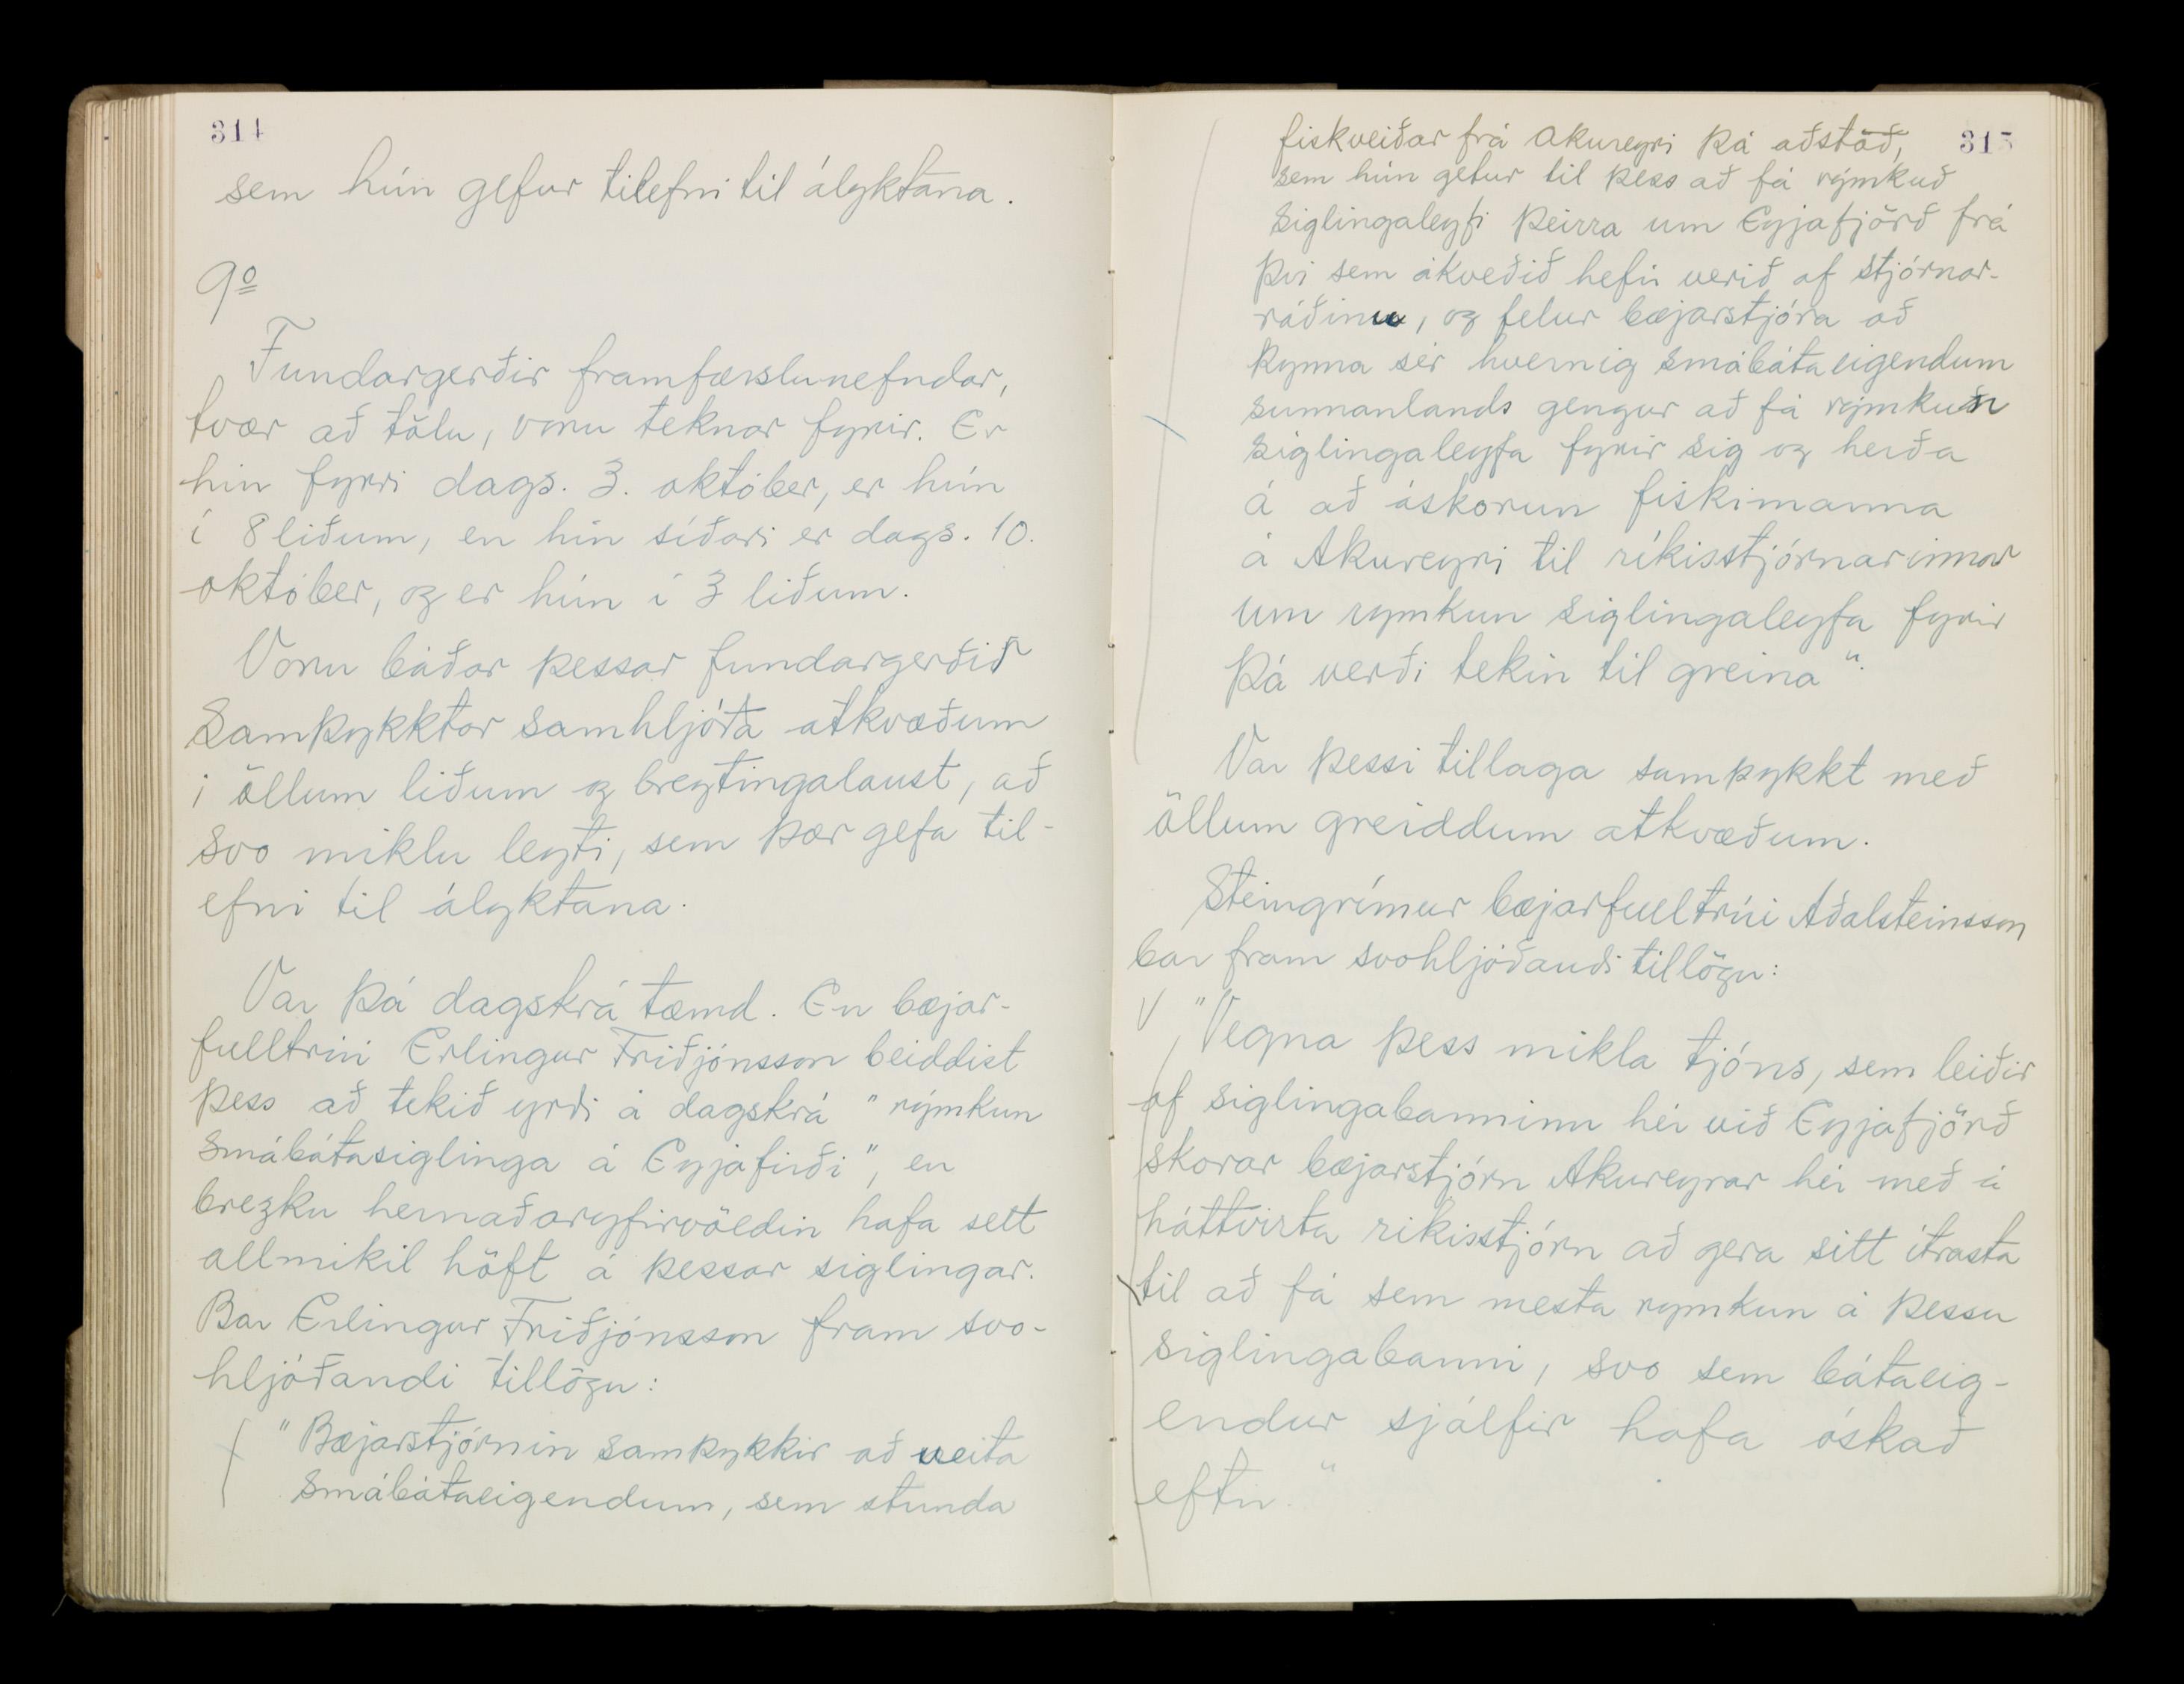 314
sem hún gefur tilefni til ályktana.
9º
Fundargerðir framfærslunefndar,
tvær að tölu, voru teknar fyrir. Er
hin fyrri dags. 3. október, er hún
í 8 liðum, en hin síðari er dags. 10.
október, og er hún í 3 liðum.
Voru báðar þessar fundargerðir
samþykktar samhljóða atkvæðum
í öllum liðum og breytingalaust, að
svo miklu leyti, sem þær gefa til-
efni til ályktana.
Var þá dagskrá tæmd. En bæjar-
fulltrúi Erlingur Friðjónsson beiddist
þess að tekið yrði á dagskrá "rýmkun
smábátasiglinga á Eyjafirði", en
brezku hernaðaryfirvöldin hafa sett
allmikil höft á þessar siglingar.
Bar Erlingur Friðjónsson fram svo-
hljóðandi tillögu:
"Bæjarstjórnin samþykkir að veita
smábátaeigendum, sem stunda
315
fiskveiðar frá Akureyri þá aðstöð,
sem hún getur til þess að fá rýmkuð
siglingaleyfi þeirra um Eyjafjörð frá
því sem ákveðið hefir verið af stjórnar-
ráðinu, og felur bæjarstjóra að
kynna sér hvernig smábátaeigendum
sunnanlands gengur að fá rýmkun
siglingaleyfa fyrir sig og herða
á að áskorun fiskimanna
á Akureyri til ríkisstjórnarinnar
um rymkun siglingaleyfa fyrir
þá verði tekin til greina".
Var þessi tillaga samþykkt með
öllum greiddum atkvæðum.
Steingrímur bæjarfulltrúi Aðalsteinsson
bar fram svohljóðandi tillögu:
"Vegna þess mikla tjóns, sem leiðir
af siglingabanninu hér við Eyjafjörð
skorar bæjarstjórn Akureyrar hér með á
háttvirta ríkisstjórn að gera sitt ítrasta
til að fá sem mesta rymkun á þessu
siglingabanni, svo sem bátaeig-
endur sjálfir hafa óskað
eftir."